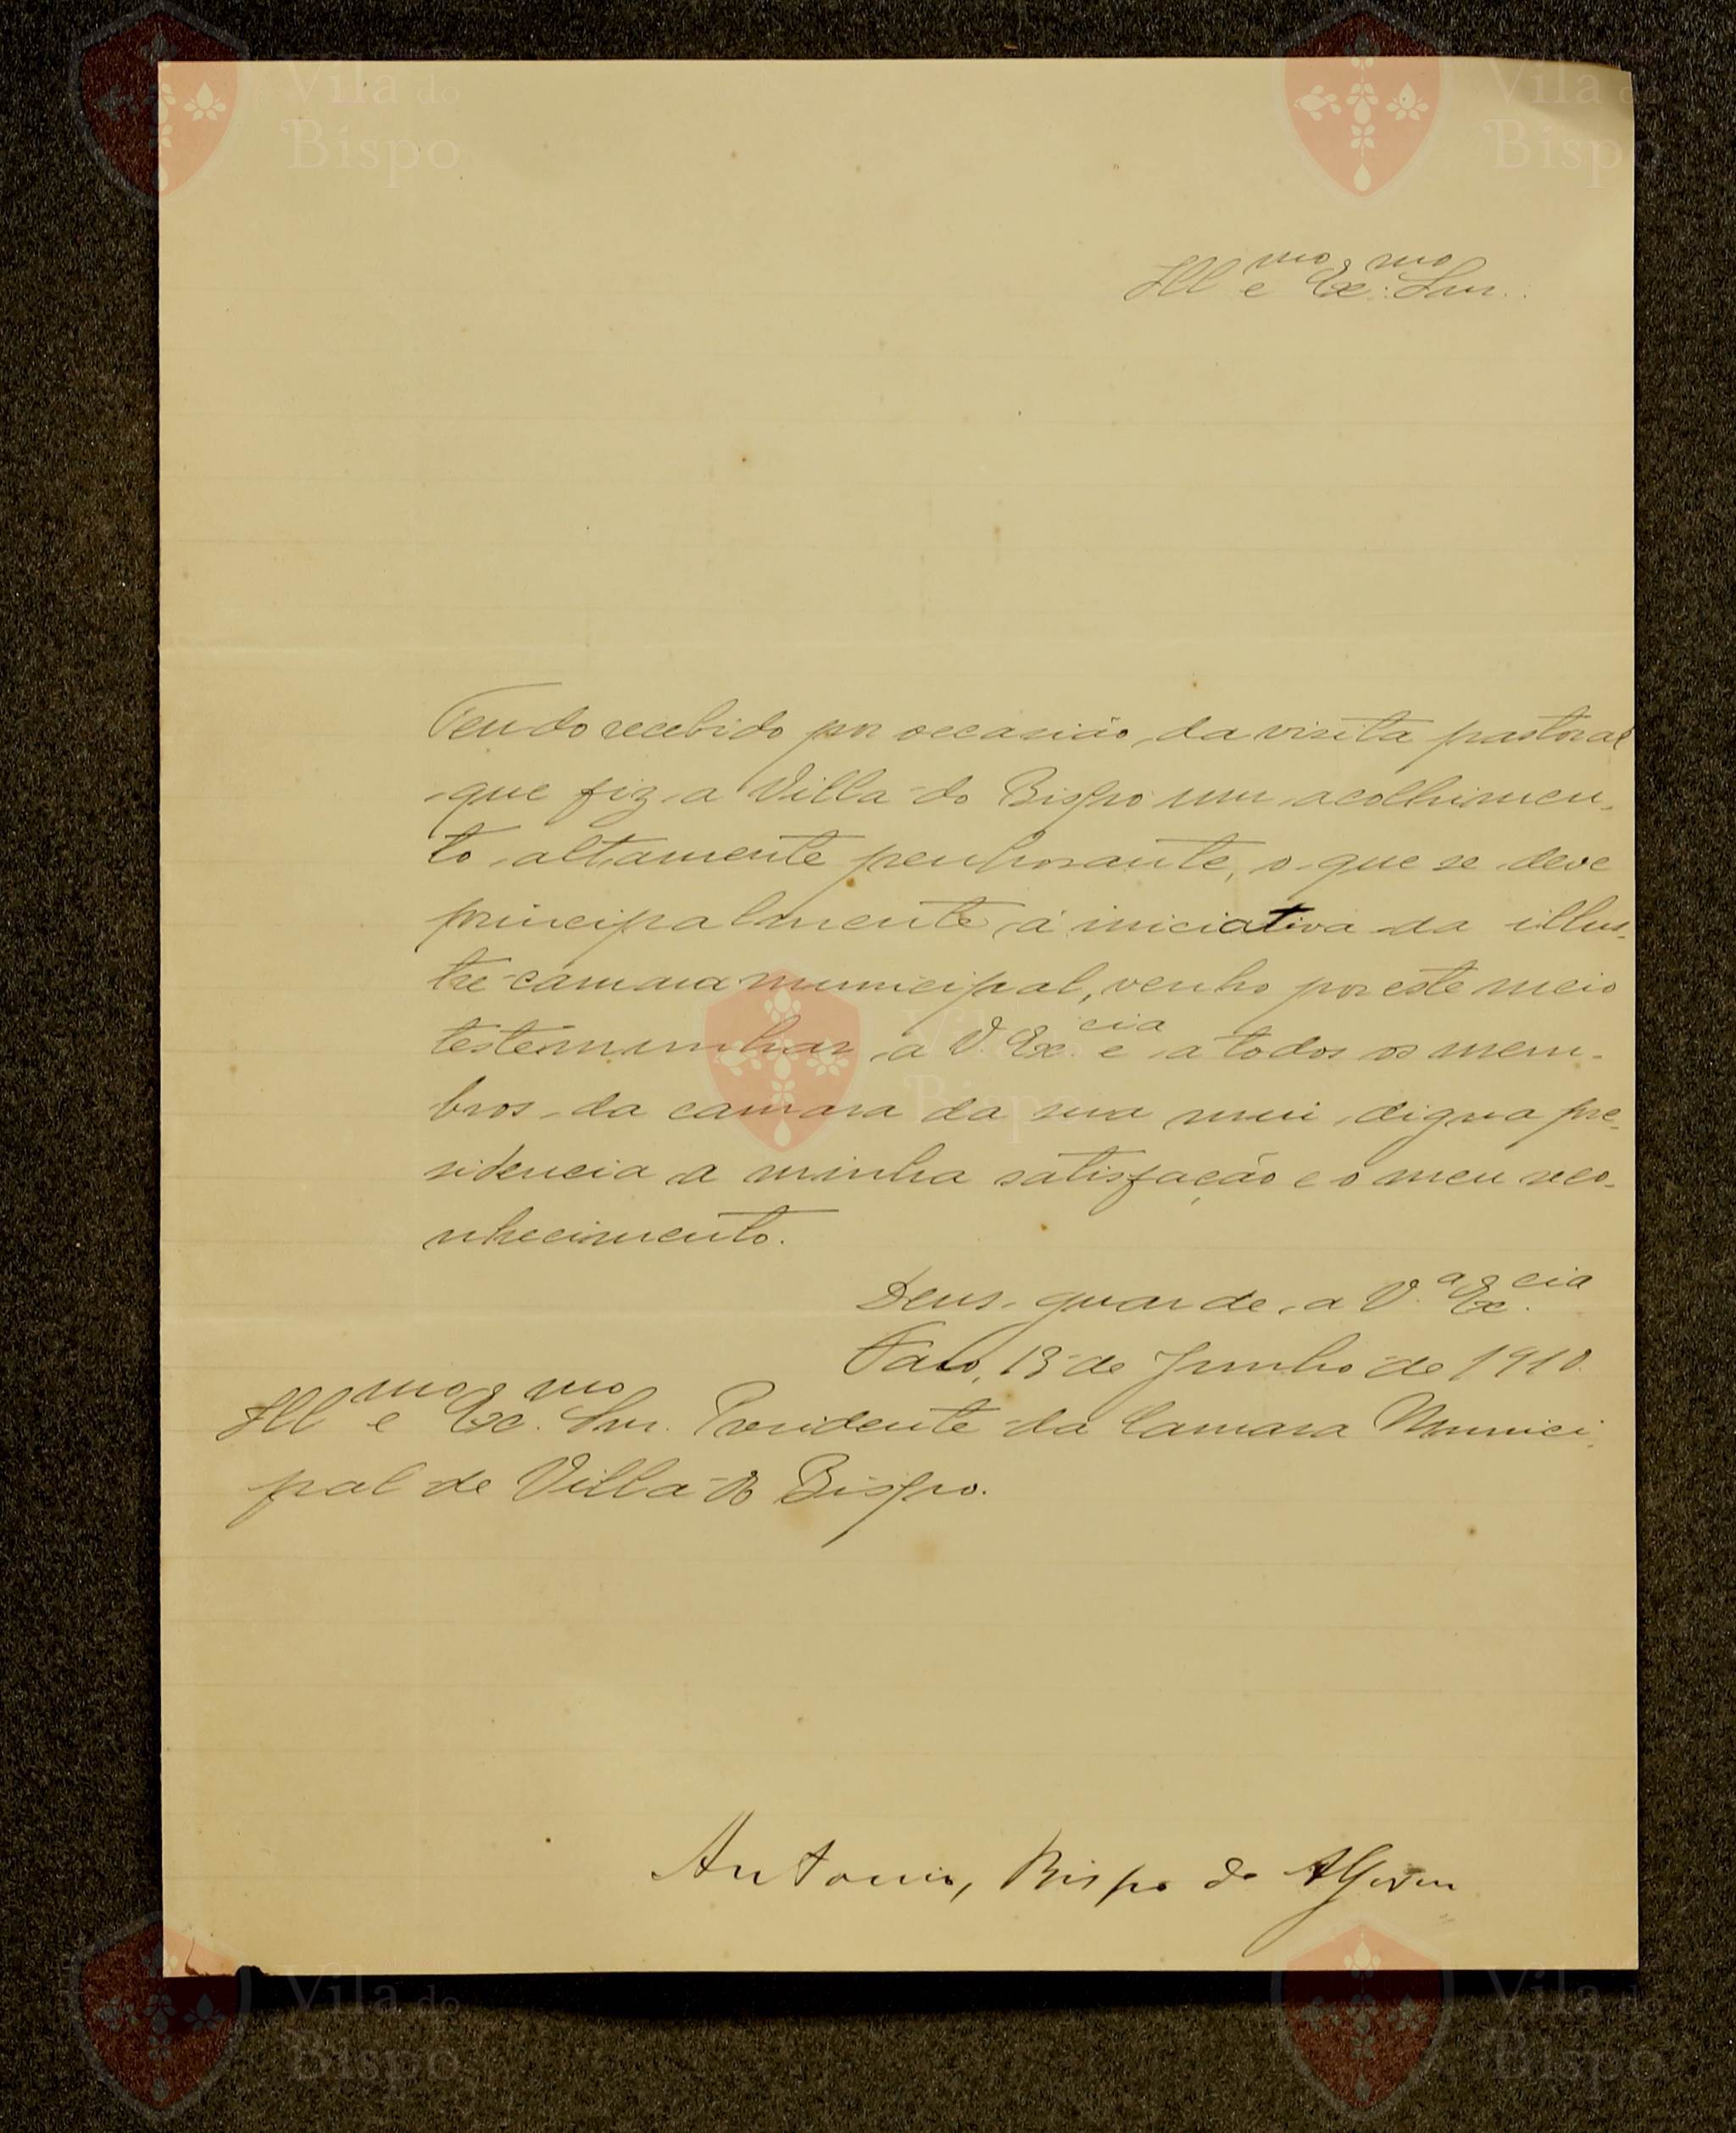 Vila do
Bispo
Vila do
Bispo
Illmo e Exmo. Snr.:
Tendo recebido por occasião da visita pastoral
que fiz a Villa do Bispo um acolhimen-
to altamente penhorante, o que se deve
principalmente á iniciativa da illus-
tre camara municipal, venho por este meio
testemunhar a V. Excia. e a todos os mem-
bros da camara da sua mui digna pre-
sidencia a minha satisfação e o meu reco-
nhecimento.
Vila do
Bispo
Deus guarde a V.a Excia.
Faro, 13 de Junho de 1910.
Illmo e Exmo. Snr. Presidente da Camara Munici-
pal de Villa do Bispo.
Antonio, Bispo do Algarve
Vila do
Bispo
Vila do
Bispo